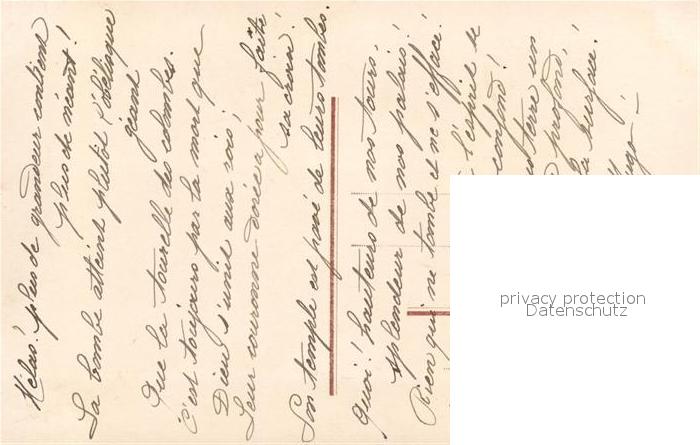 Hélas! plus de grandeur contient
plus de néant!
La bombe atteint plutôt l'obélisque
géant
Que la tourelle des colombes.
C'est toujours par la mort que
Dieu s'unit aux rois;
Leur couronne dorée a pour faîte
sa croix!
Son temple est pavé de leurs tombes.
Quoi! hauteurs de nos tours,
splendeur de nos palais,
Rien qui ne tombe et ne s'efface!
l'esprit se
confond!
terre un
profond,
surface!
privacy protection
Datenschutz